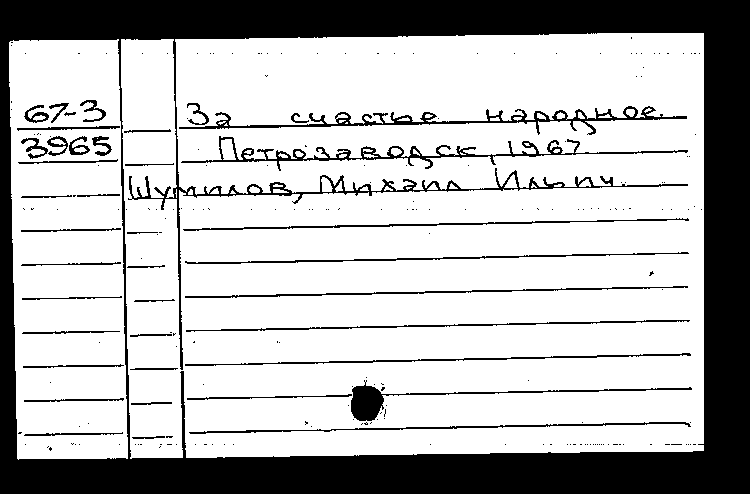 67-3 За счастье народное.
3965 Петрозаводск, 1967.
Шумилов, Михаил Ильич.